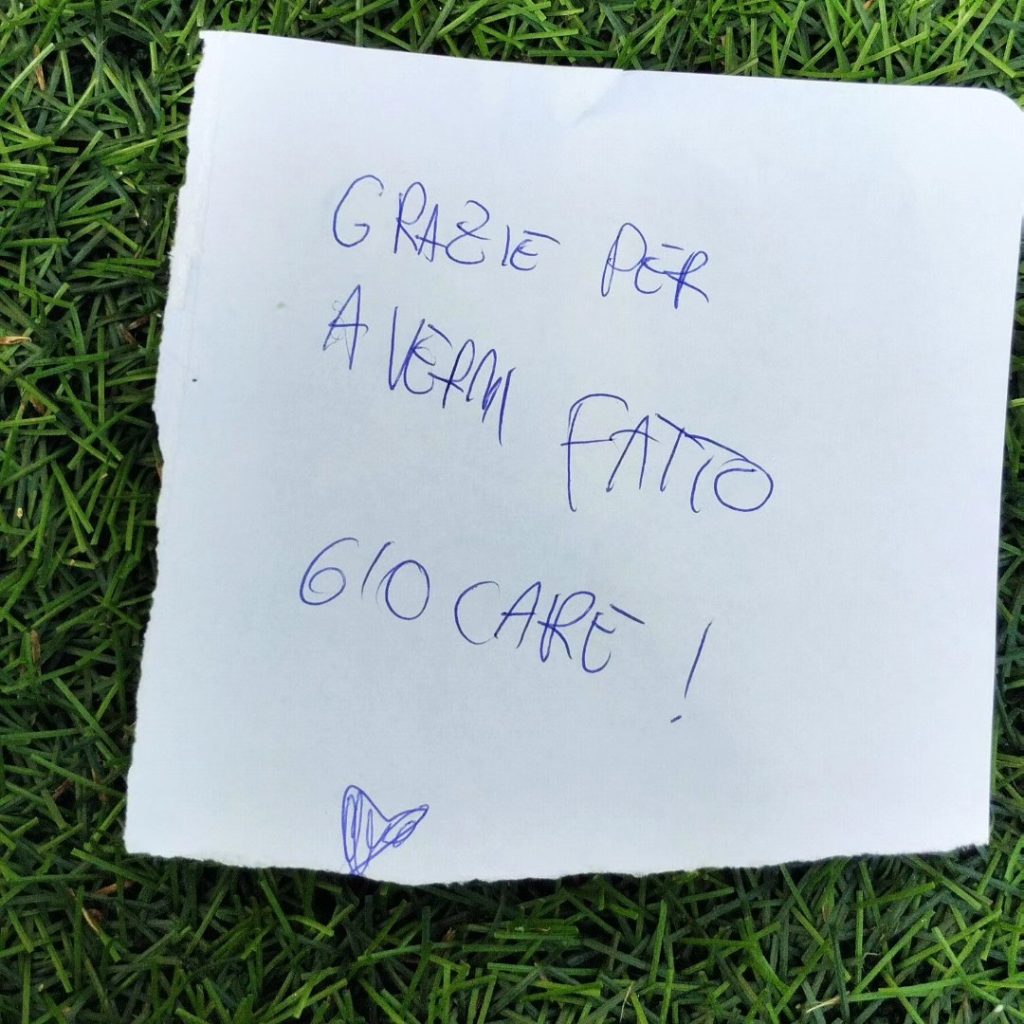 GRAZIE PER
AVERMI FATTO
GIOCARE!